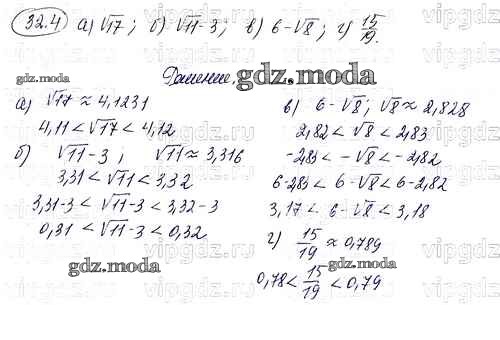 32.4 а) √17; б) √11-3; в) 6-√8; г) 15/19.
Решение.
gdz.moda
а) √17 ≈ 4,1231
4,11 < √17 < 4,12
б) √11-3; √11 ≈ 3,316
3,31 < √11 < 3,32
3,31-3 < √11-3 < 3,32-3
0,31 < √11-3 < 0,32
в) 6-√8; √8 ≈ 2,828
2,82 < √8 < 2,83
-2,83 < -√8 < -2,82
6-2,83 < 6-√8 < 6-2,82
3,17 < 6-√8 < 3,18
г) 15/19 ≈ 0,789
0,78 < 15/19 < 0,79
gdz.moda
gdz.moda
gdz.moda
vipgdz.com